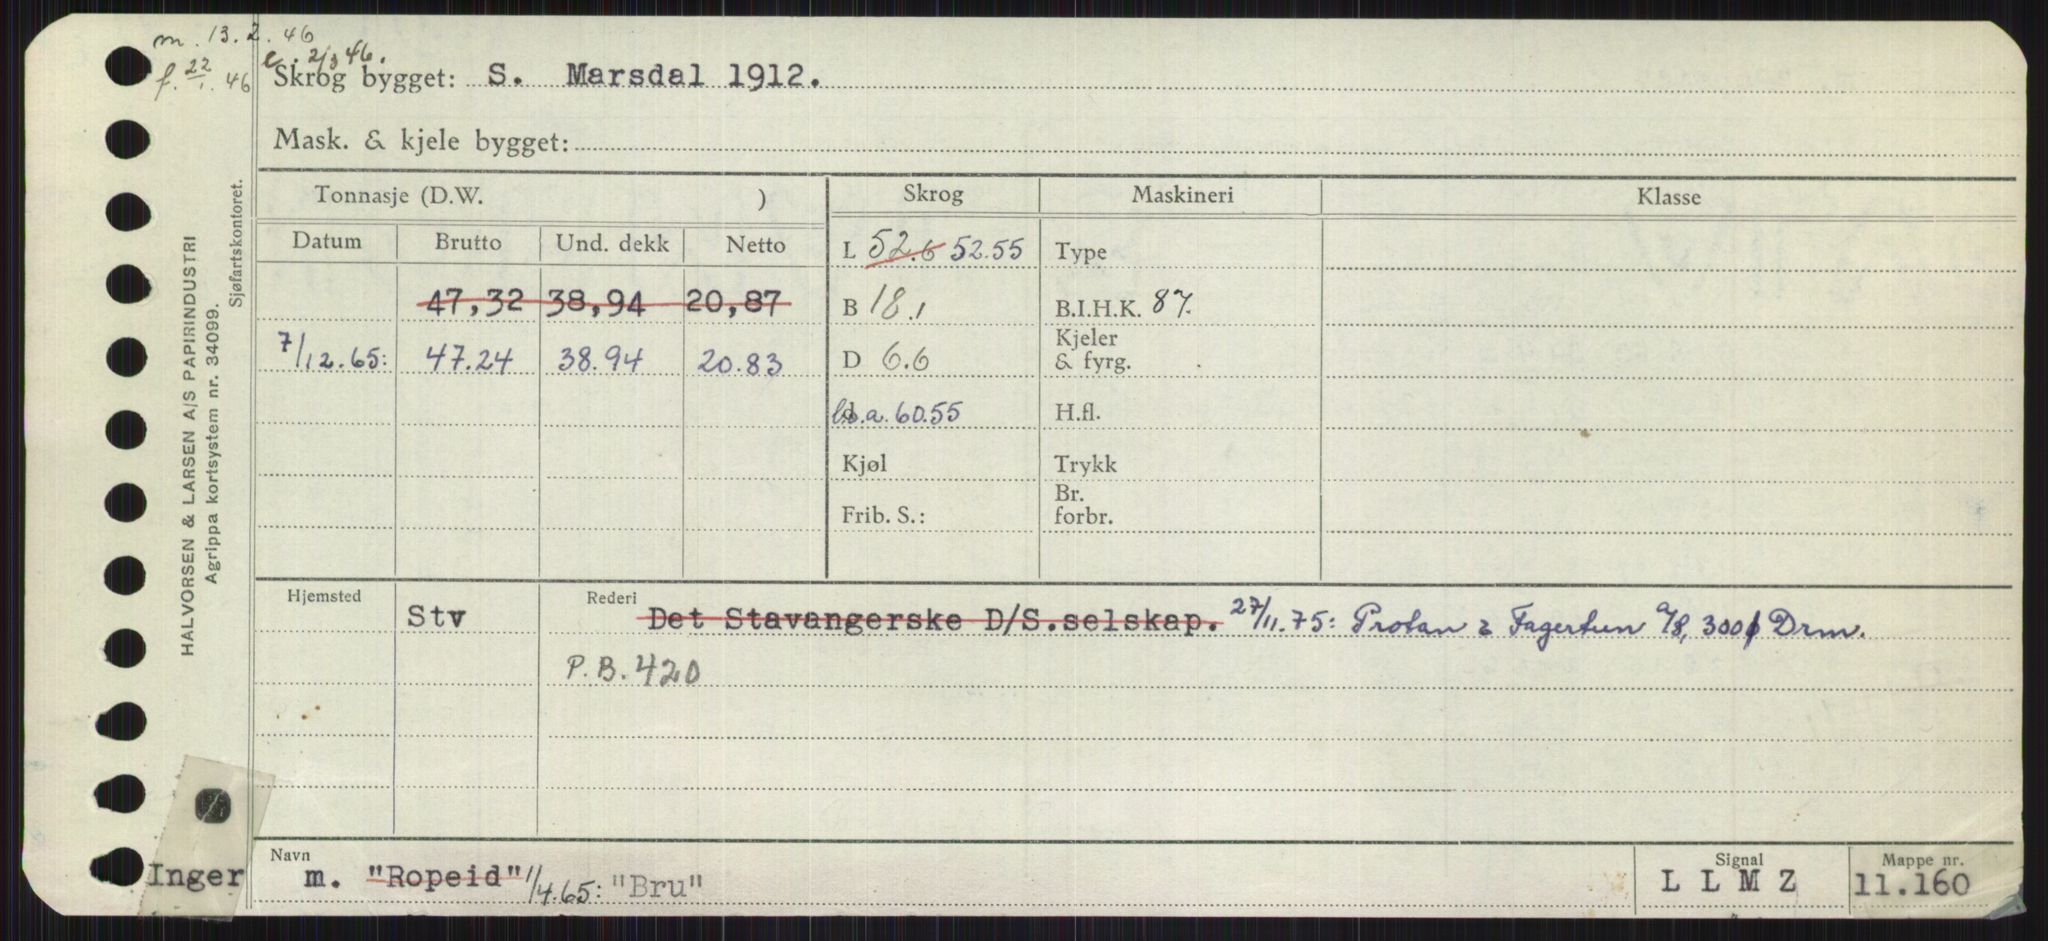 m. 13.2.46
e. 2/3 46.
f. 22/1. 46
Skrog bygget: S. Marsdal 1912.
Mask. & kjele bygget:
HALVORSEN & LARSEN A/S PAPIRINDUSTRI
Agrippa kortsystem nr. 34099.
Sjøfartskontoret.
Tonnasje (D.W. ) Skrog Maskineri Klasse
Datum Brutto Und. dekk Netto L 52.6 52.55 Type
47,32 38,94 20,87 B 18.1 B.I.H.K. 87.
7/12.65: 47.24 38.94 20.83 D 6.6 Kjeler & fyrg.
d a. 60.55 H.fl.
Kjøl Trykk
Frib. S.: Br. forbr.
Hjemsted Rederi
Stv Det Stavangerske D/S.selskap. 27/11.75: Protan & Fagertun a/s, 3000 Drm.
P.B. 420
Navn Signal Mappe nr.
Inger m. "Ropeid" 1/4.65: "Bru" L L M Z 11.160